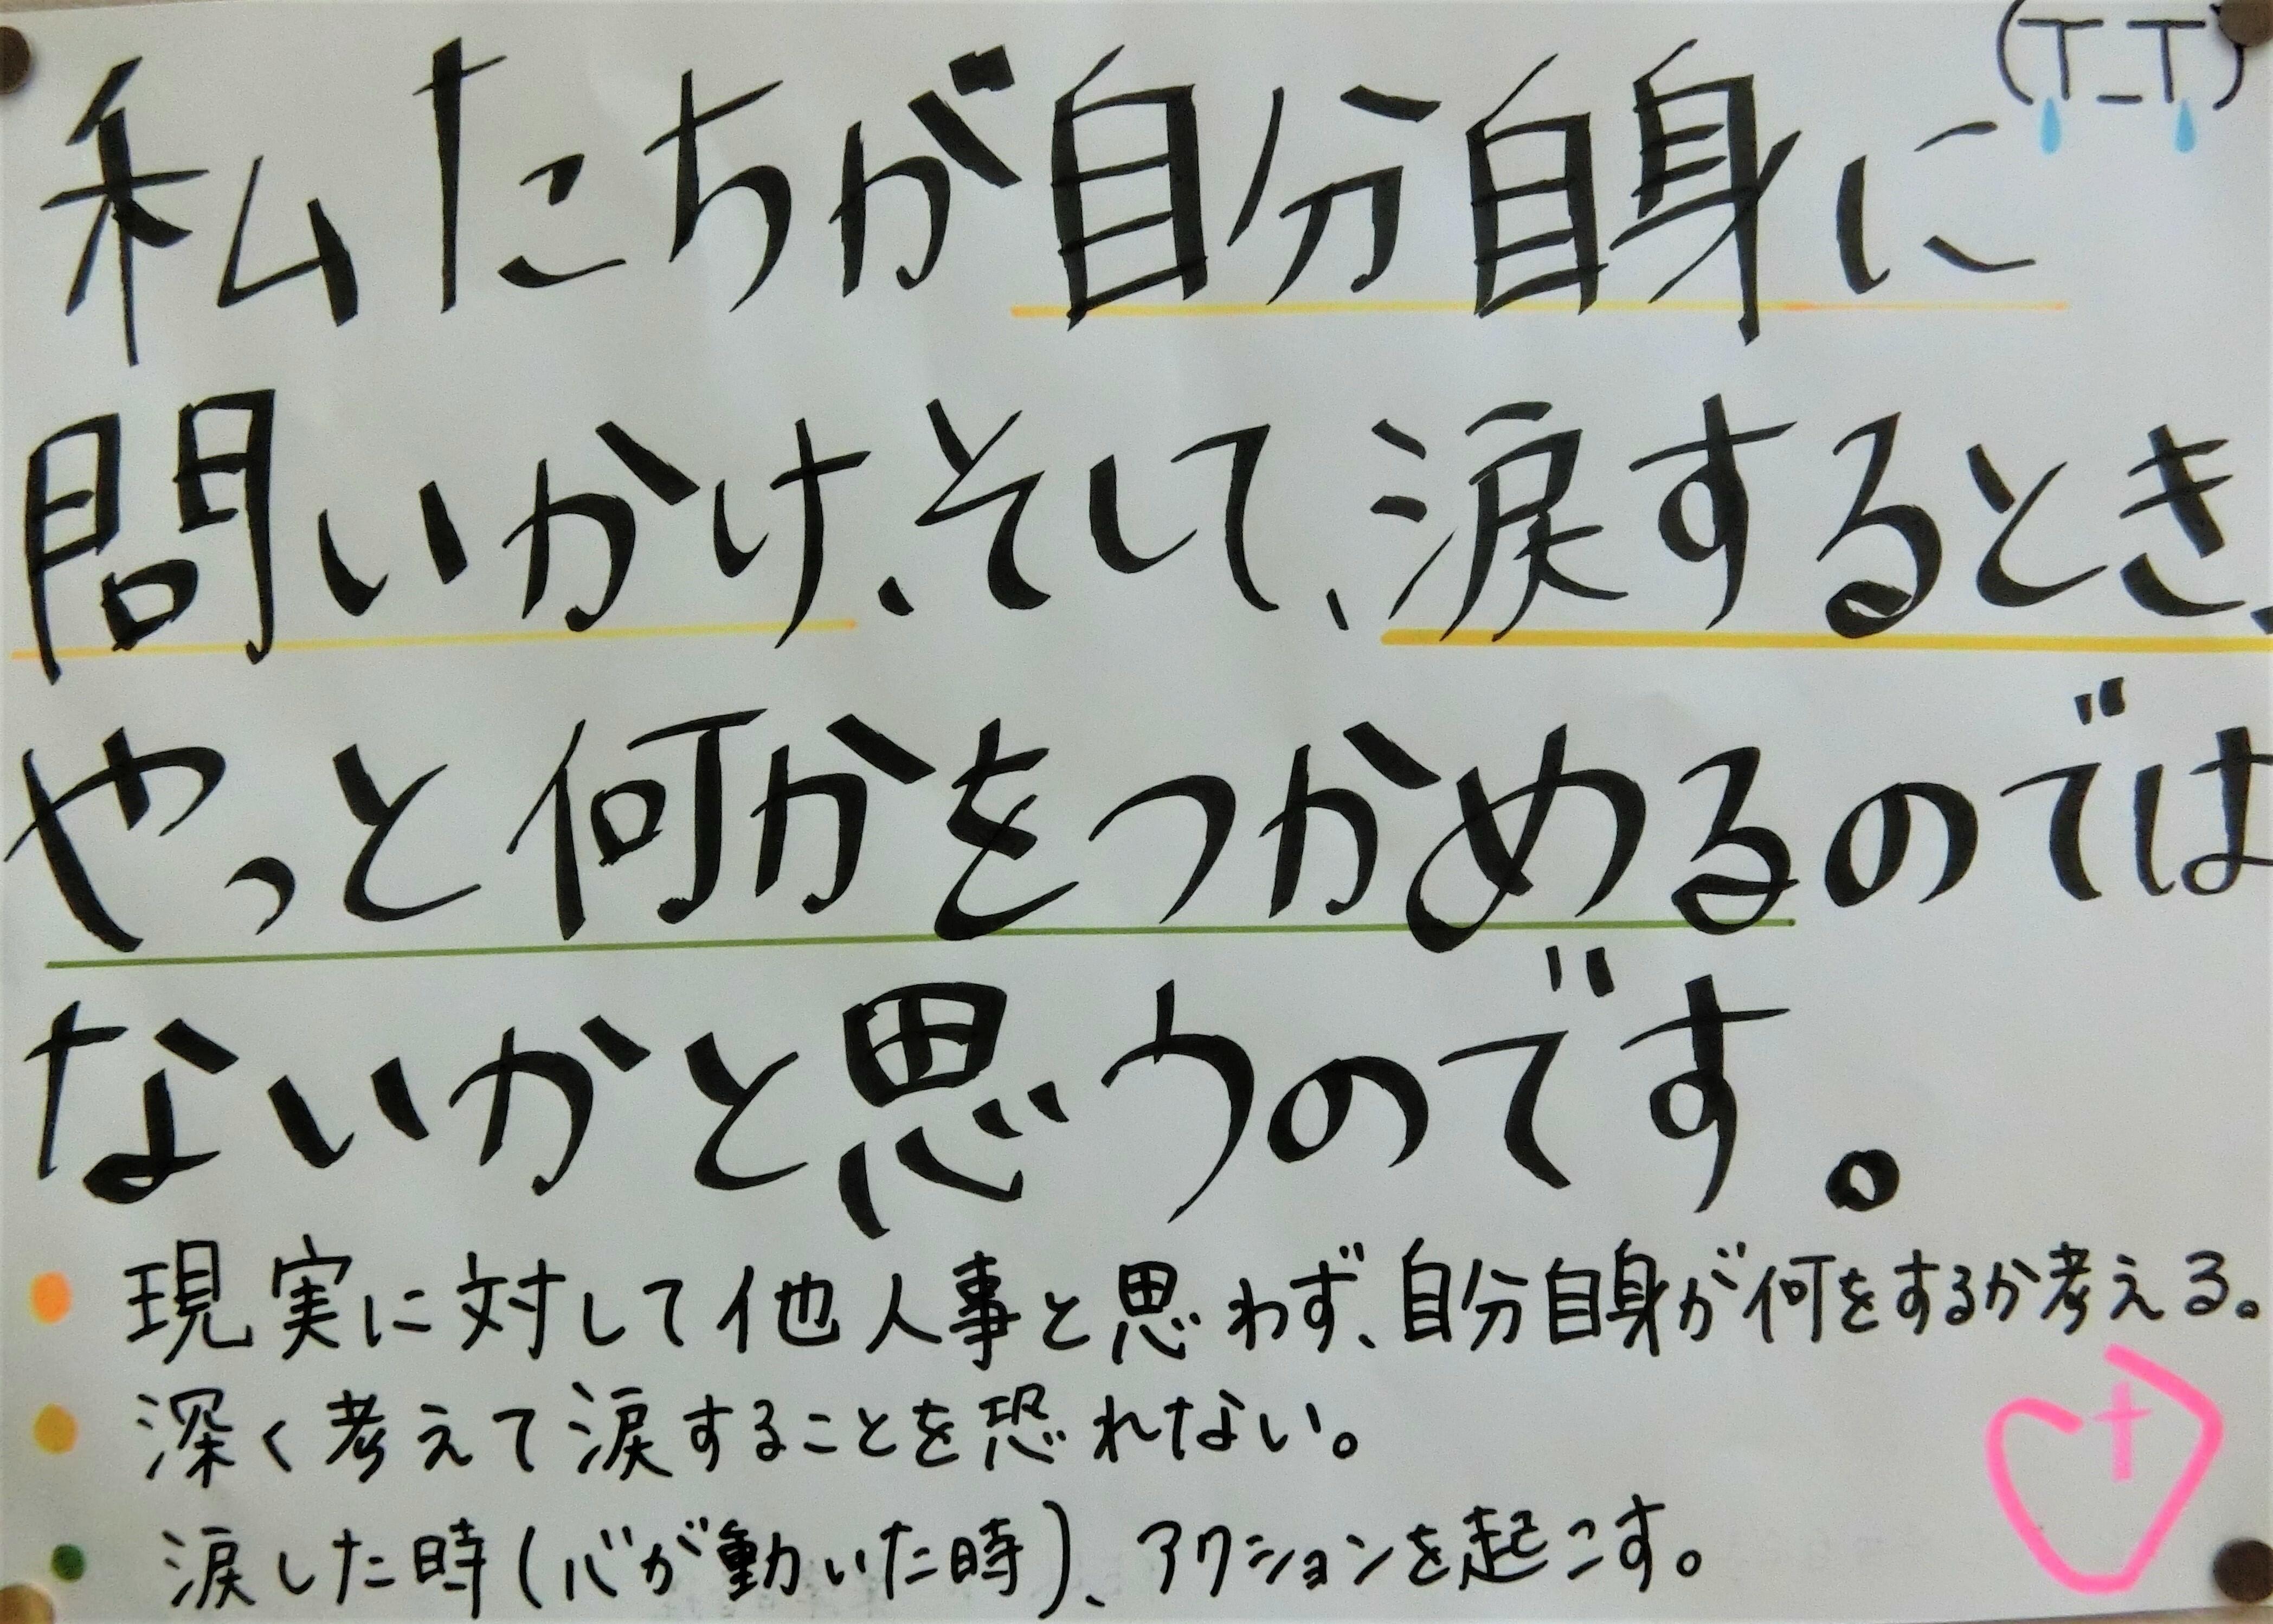 (T_T)
私たちが自分自身に
問いかけ、そして、涙するとき、
やっと何かをつかめるのでは
ないかと思うのです。
現実に対して他人事と思わず、自分自身が何をするか考える。
深く考えて涙することを恐れない。
涙した時(心が動いた時)、アクションを起こす。